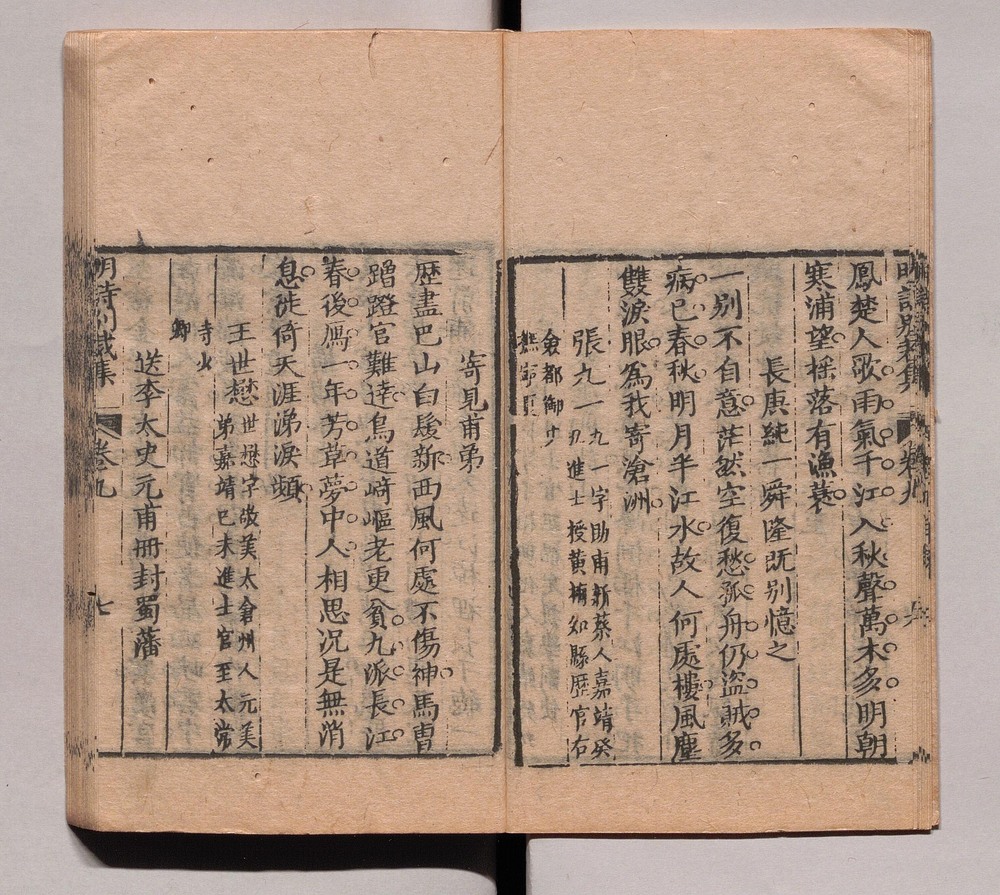 鳳楚人歌雨氣千江入秋聲萬木多明朝
寒浦望揺落有漁蓑
長庚純一舜隆旣别憶之
一别不自意茫然空復愁孤舟仍盗賊多
病已春秋明月半江水故人何處樓風塵
雙淚眼爲我寄滄洲
張九一
九一字助甫新蔡人嘉靖癸
丑進士授黄梅如縣歴官右
僉都御
寄見甫弟
歴盡巴山白髮新西風何處不傷神馬曹
蹭蹬官難達鳥道﨑嶇老更貧九派長江
春後鴈一年芳草夢中人相思况是無消
息徙倚天涯涕淚頻
王世懋
世懋字敬美太倉州人元美
弟嘉靖己未進士官至太常
寺少
卿
送李太史元甫冊封蜀藩
明詩别裁集 卷九 七